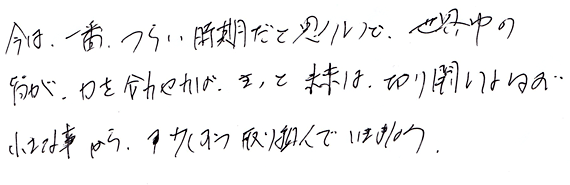 今は、一番、つらい時期だと思いんで、世界中の
皆が、力を合わせれば、きっと未来は、切り開いよね
小さな事から、取り組んでいきましょう。